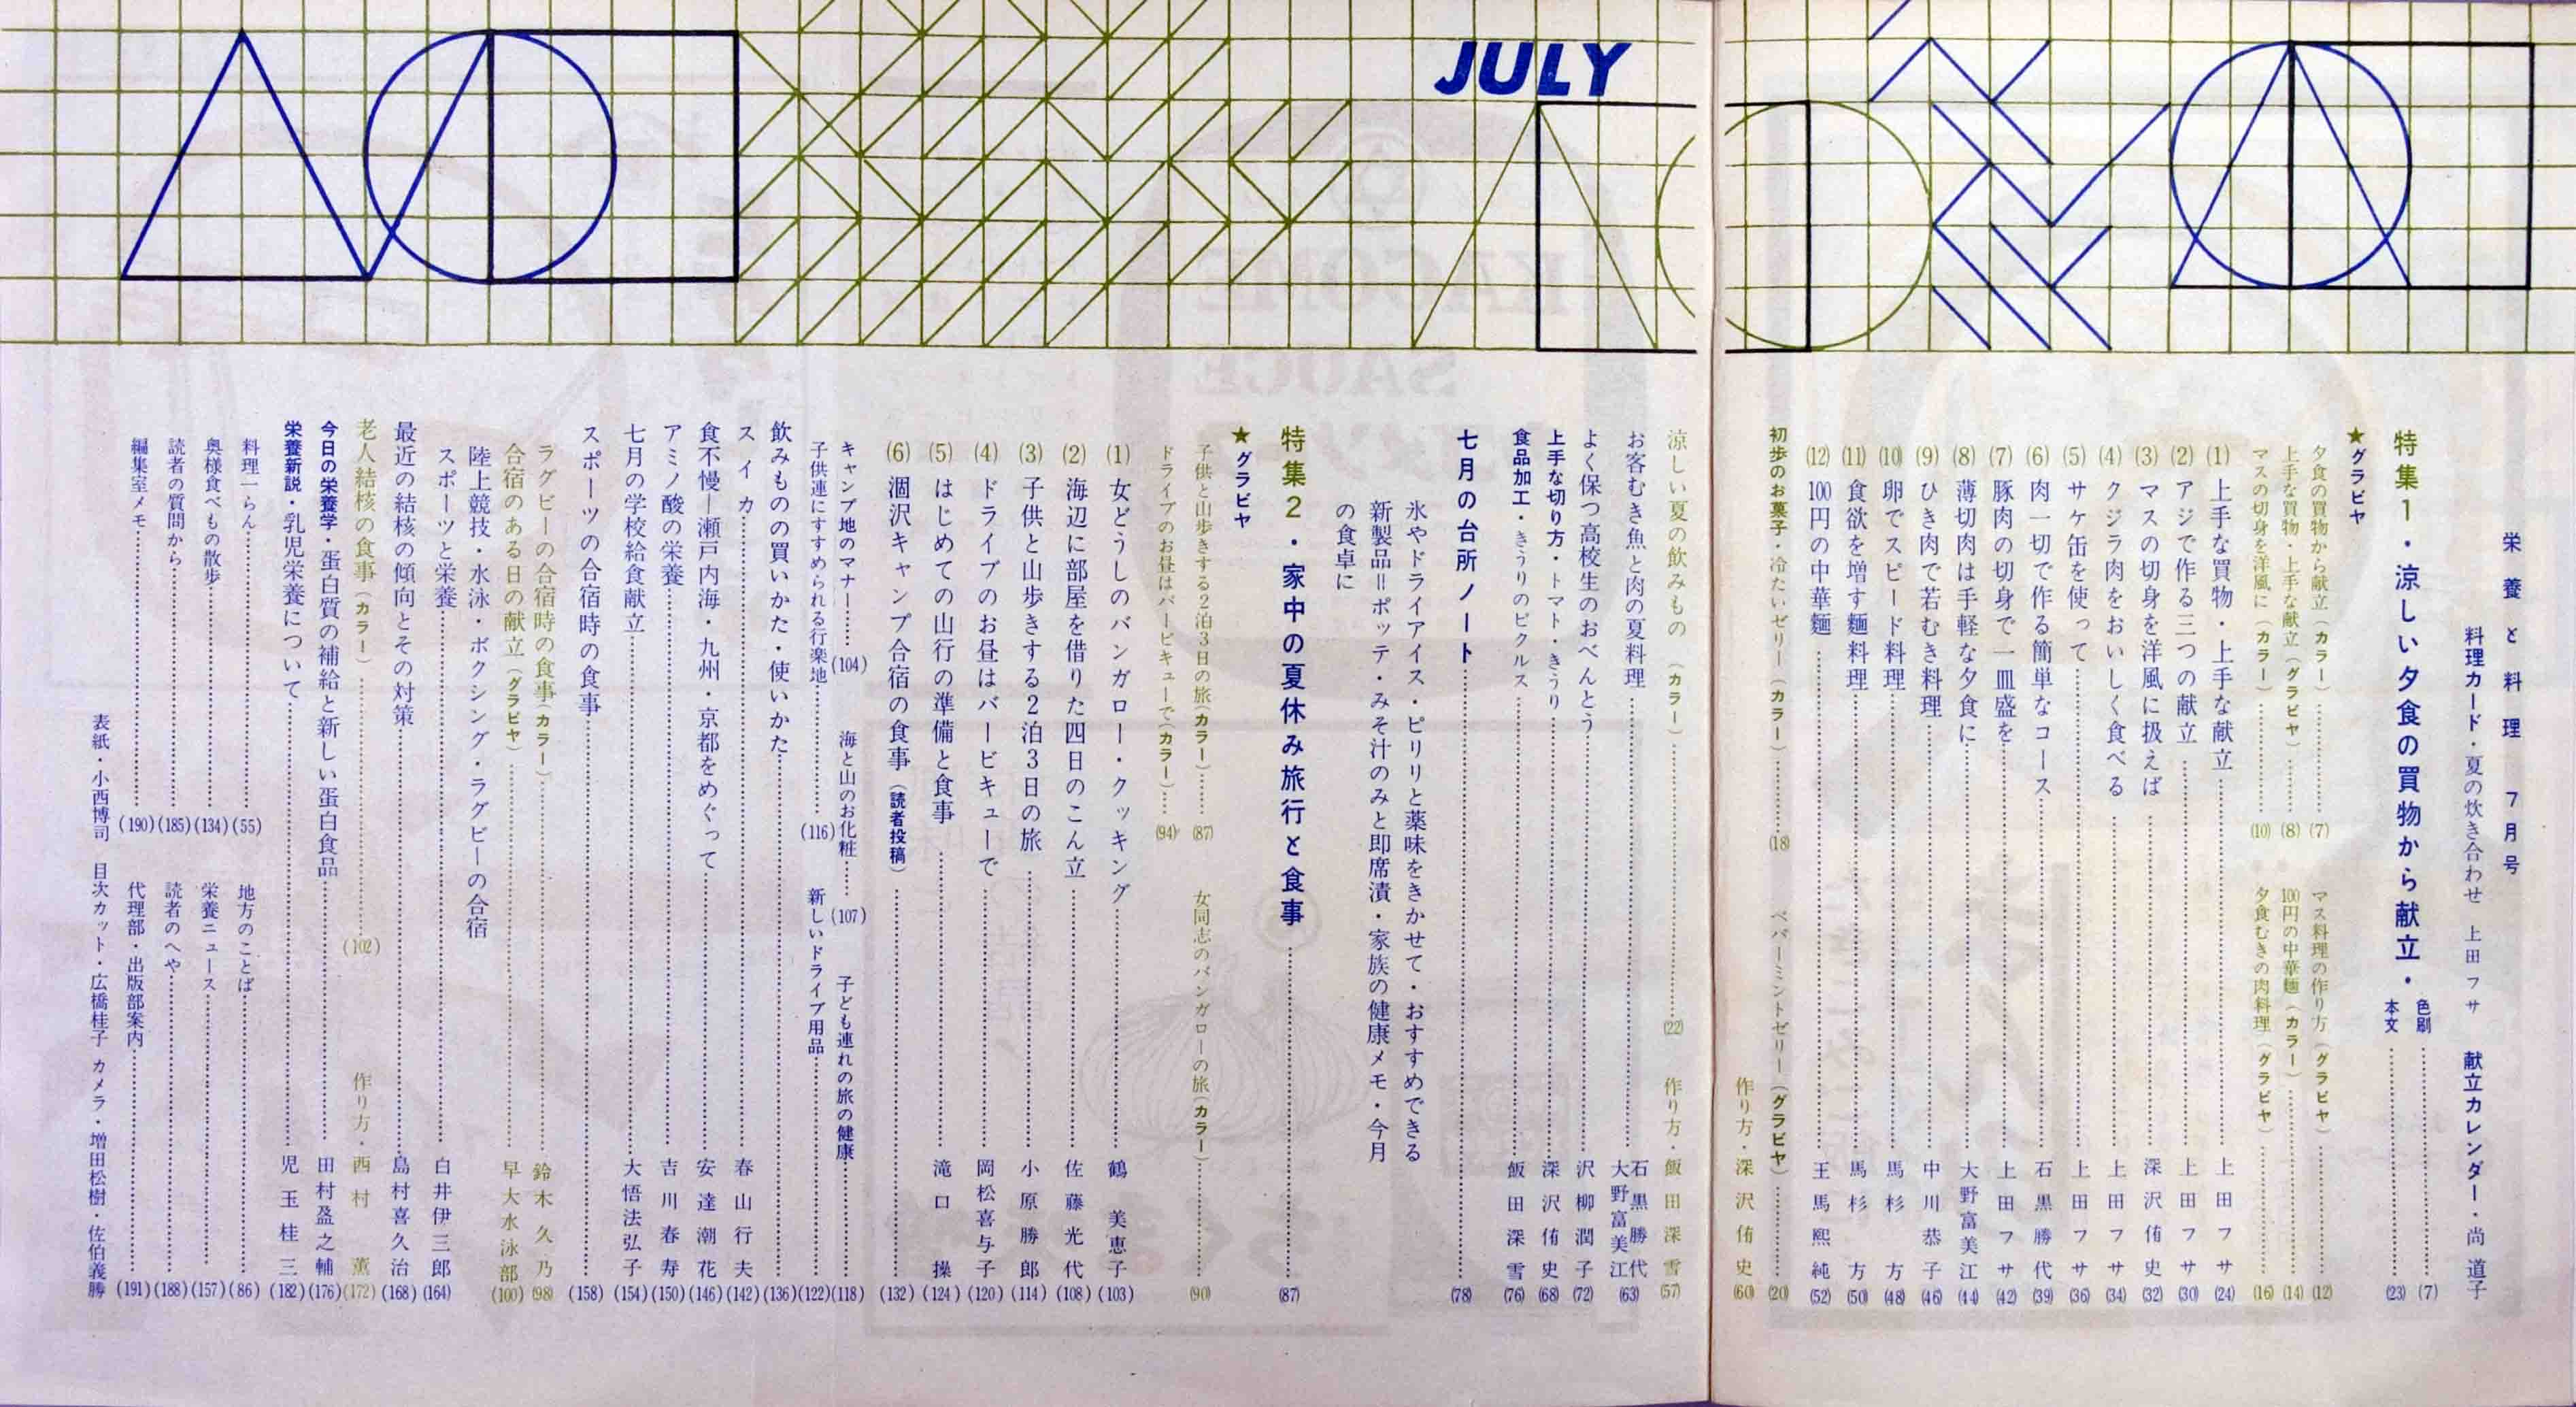 JULY
栄養と料理 7月号
料理カード・夏の炊き合わせ 上田フサ 献立カレンダー・尚道子
特集1・涼しい夕食の買物から献立・色刷……(7)
本文……(23)
★グラビヤ
夕食の買物から献立(カラー)……(7) マス料理の作り方(グラビヤ)……(12)
上手な買物・上手な献立(グラビヤ)……(8) 100円の中華麺(カラー)……(14)
マスの切身を洋風に(カラー)……(10) 夕食むきの肉料理(グラビヤ)……(16)
(1) 上手な買物・上手な献立……上田フサ(24)
(2) アジで作る三つの献立……上田フサ(30)
(3) マスの切身を洋風に扱えば……深沢侑史(32)
(4) クジラ肉をおいしく食べる……上田フサ(34)
(5) サケ缶を使って……上田フサ(36)
(6) 肉一切で作る簡単なコース……石黒勝代(39)
(7) 豚肉の切身で一皿盛を……上田フサ(42)
(8) 薄切肉は手軽な夕食に……大野富美江(44)
(9) ひき肉で若むき料理……中川恭子(46)
(10) 卵でスピード料理……馬杉方(48)
(11) 食欲を増す麺料理……馬杉方(50)
(12) 100円の中華麺……王馬熙純(52)
初歩のお菓子・冷たいゼリー(カラー)……(18) ペパーミントゼリー(グラビヤ)……(20)
作り方・深沢侑史(60)
涼しい夏の飲みもの(カラー)……(22) 作り方・飯田深雪(57)
お客むき魚と肉の夏料理……石黒勝代 大野富美江(63)
よく保つ高校生のおべんとう……沢柳潤子(72)
上手な切り方・トマト・きうり……深沢侑史(68)
食品加工・きうりのピクルス……飯田深雪(76)
七月の台所ノート……(78)
氷やドライアイス・ピリリと薬味をきかせて・おすすめできる
新製品=ポッテ・みそ汁のみと即席漬・家族の健康メモ・今月
の食卓に
特集2・家中の夏休み旅行と食事……(87)
★グラビヤ
子供と山歩きする2泊3日の旅(カラー)……(87) 女同志のバンガローの旅(カラー)……(90)
ドライブのお昼はバービキューで(カラー)……(94)
(1) 女どうしのバンガロー・クッキング……鶴美恵子(103)
(2) 海辺に部屋を借りた四日のこん立……佐藤光代(108)
(3) 子供と山歩きする2泊3日の旅……小原勝郎(114)
(4) ドライブのお昼はバービキューで……岡松喜与子(120)
(5) はじめての山行の準備と食事……滝口操(124)
(6) 涸沢キャンプ合宿の食事(読者投稿)……(132)
キャンプ地のマナー……(104) 海と山のお化粧……(107) 子ども連れの旅の健康……(118)
子供連にすすめられる行楽地……(116) 新しいドライブ用品……(122)
飲みものの買いかた・使いかた……(136)
スイカ……春山行夫(142)
食不慢―瀬戸内海・九州・京都をめぐって……安達潮花(146)
アミノ酸の栄養……吉川春寿(150)
七月の学校給食献立……大悟法弘子(154)
スポーツの合宿時の食事……(158)
ラグビーの合宿時の食事(カラー)……鈴木久乃(98)
合宿のある日の献立(グラビヤ)……早大水泳部(100)
陸上競技・水泳・ボクシング・ラグビーの合宿
スポーツと栄養……白井伊三郎(164)
最近の結核の傾向とその対策……島村喜久治(168)
老人結核の食事(カラー)……(102) 作り方・西村薫(172)
今日の栄養学・蛋白質の補給と新しい蛋白食品……田村盈之輔(176)
栄養新説・乳児栄養について……児玉桂三(182)
料理一らん……(55) 地方のことば……(86)
奥様食べもの散歩……(134) 栄養ニュース……(157)
読者の質問から……(185) 読者のへや……(188)
編集室メモ……(190) 代理部・出版部案内……(191)
表紙・小西博司 目次カット・広橋桂子 カメラ・増田松樹・佐伯義勝